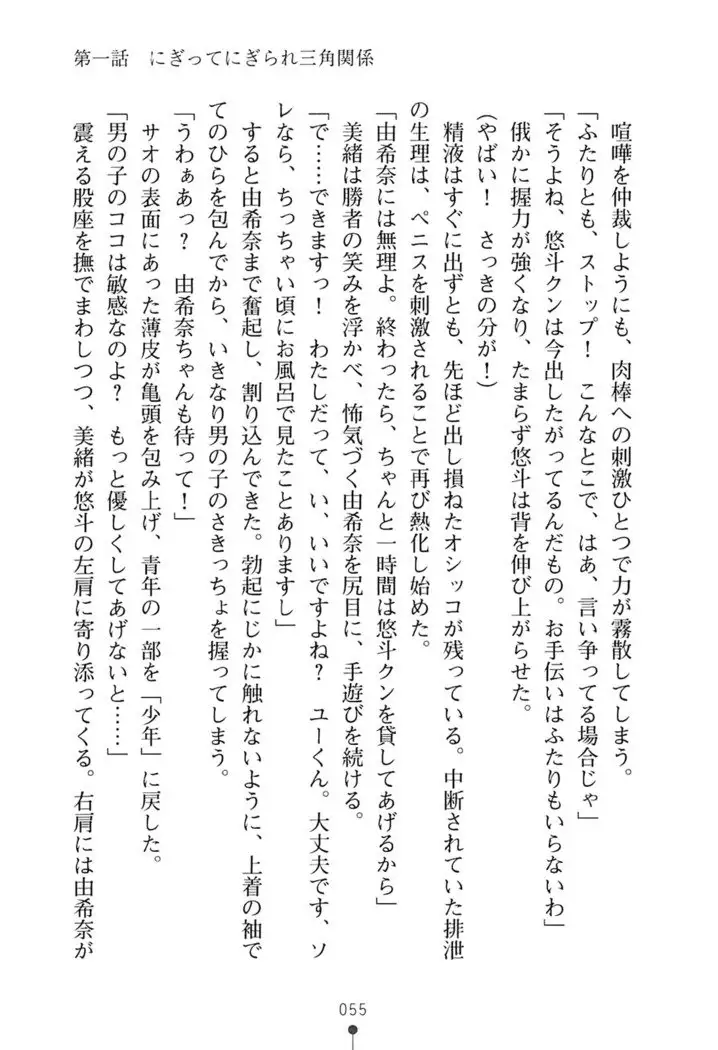 第一話　にぎってにぎられ三角関係
喧嘩を仲裁しようにも、肉棒への刺激ひとつで力が霧散してしまう。
「ふたりとも、ストップ！　こんなとこで、はぁ、言い争ってる場合じゃ」
「そうよね、悠斗クンは今出したがってるんだもの。お手伝いはふたりもいらないわ」
俄かに握力が強くなり、たまらず悠斗は背を伸び上がらせた。
（やばい！　さっきの分が！）
精液はすぐに出ずとも、先ほど出し損ねたオシッコが残っている。中断されていた排泄
の生理は、ペニスを刺激されることで再び熱化し始めた。
「由希奈には無理よ。終わったら、ちゃんと一時間は悠斗クンを貸してあげるから」
美緒は勝者の笑みを浮かべ、怖気づく由希奈を尻目に、手遊びを続ける。
「で……できますっ！　わたしだって、い、いいですよね？　ユーくん。大丈夫です、ソ
レなら、ちっちゃい頃にお風呂で見たことありますし」
すると由希奈まで奮起し、割り込んできた。勃起にじかに触れないように、上着の袖で
てのひらを包んでから、いきなり男の子のさきっちょを握ってしまう。
「うわぁあっ？　由希奈ちゃんも待って！」
サオの表面にあった薄皮が亀頭を包み上げ、青年の一部を「少年」に戻した。
「男の子のココは敏感なのよ？　もっと優しくしてあげないと……」
震える股座を撫でまわしつつ、美緒が悠斗の左肩に寄り添ってくる。右肩には由希奈が
055